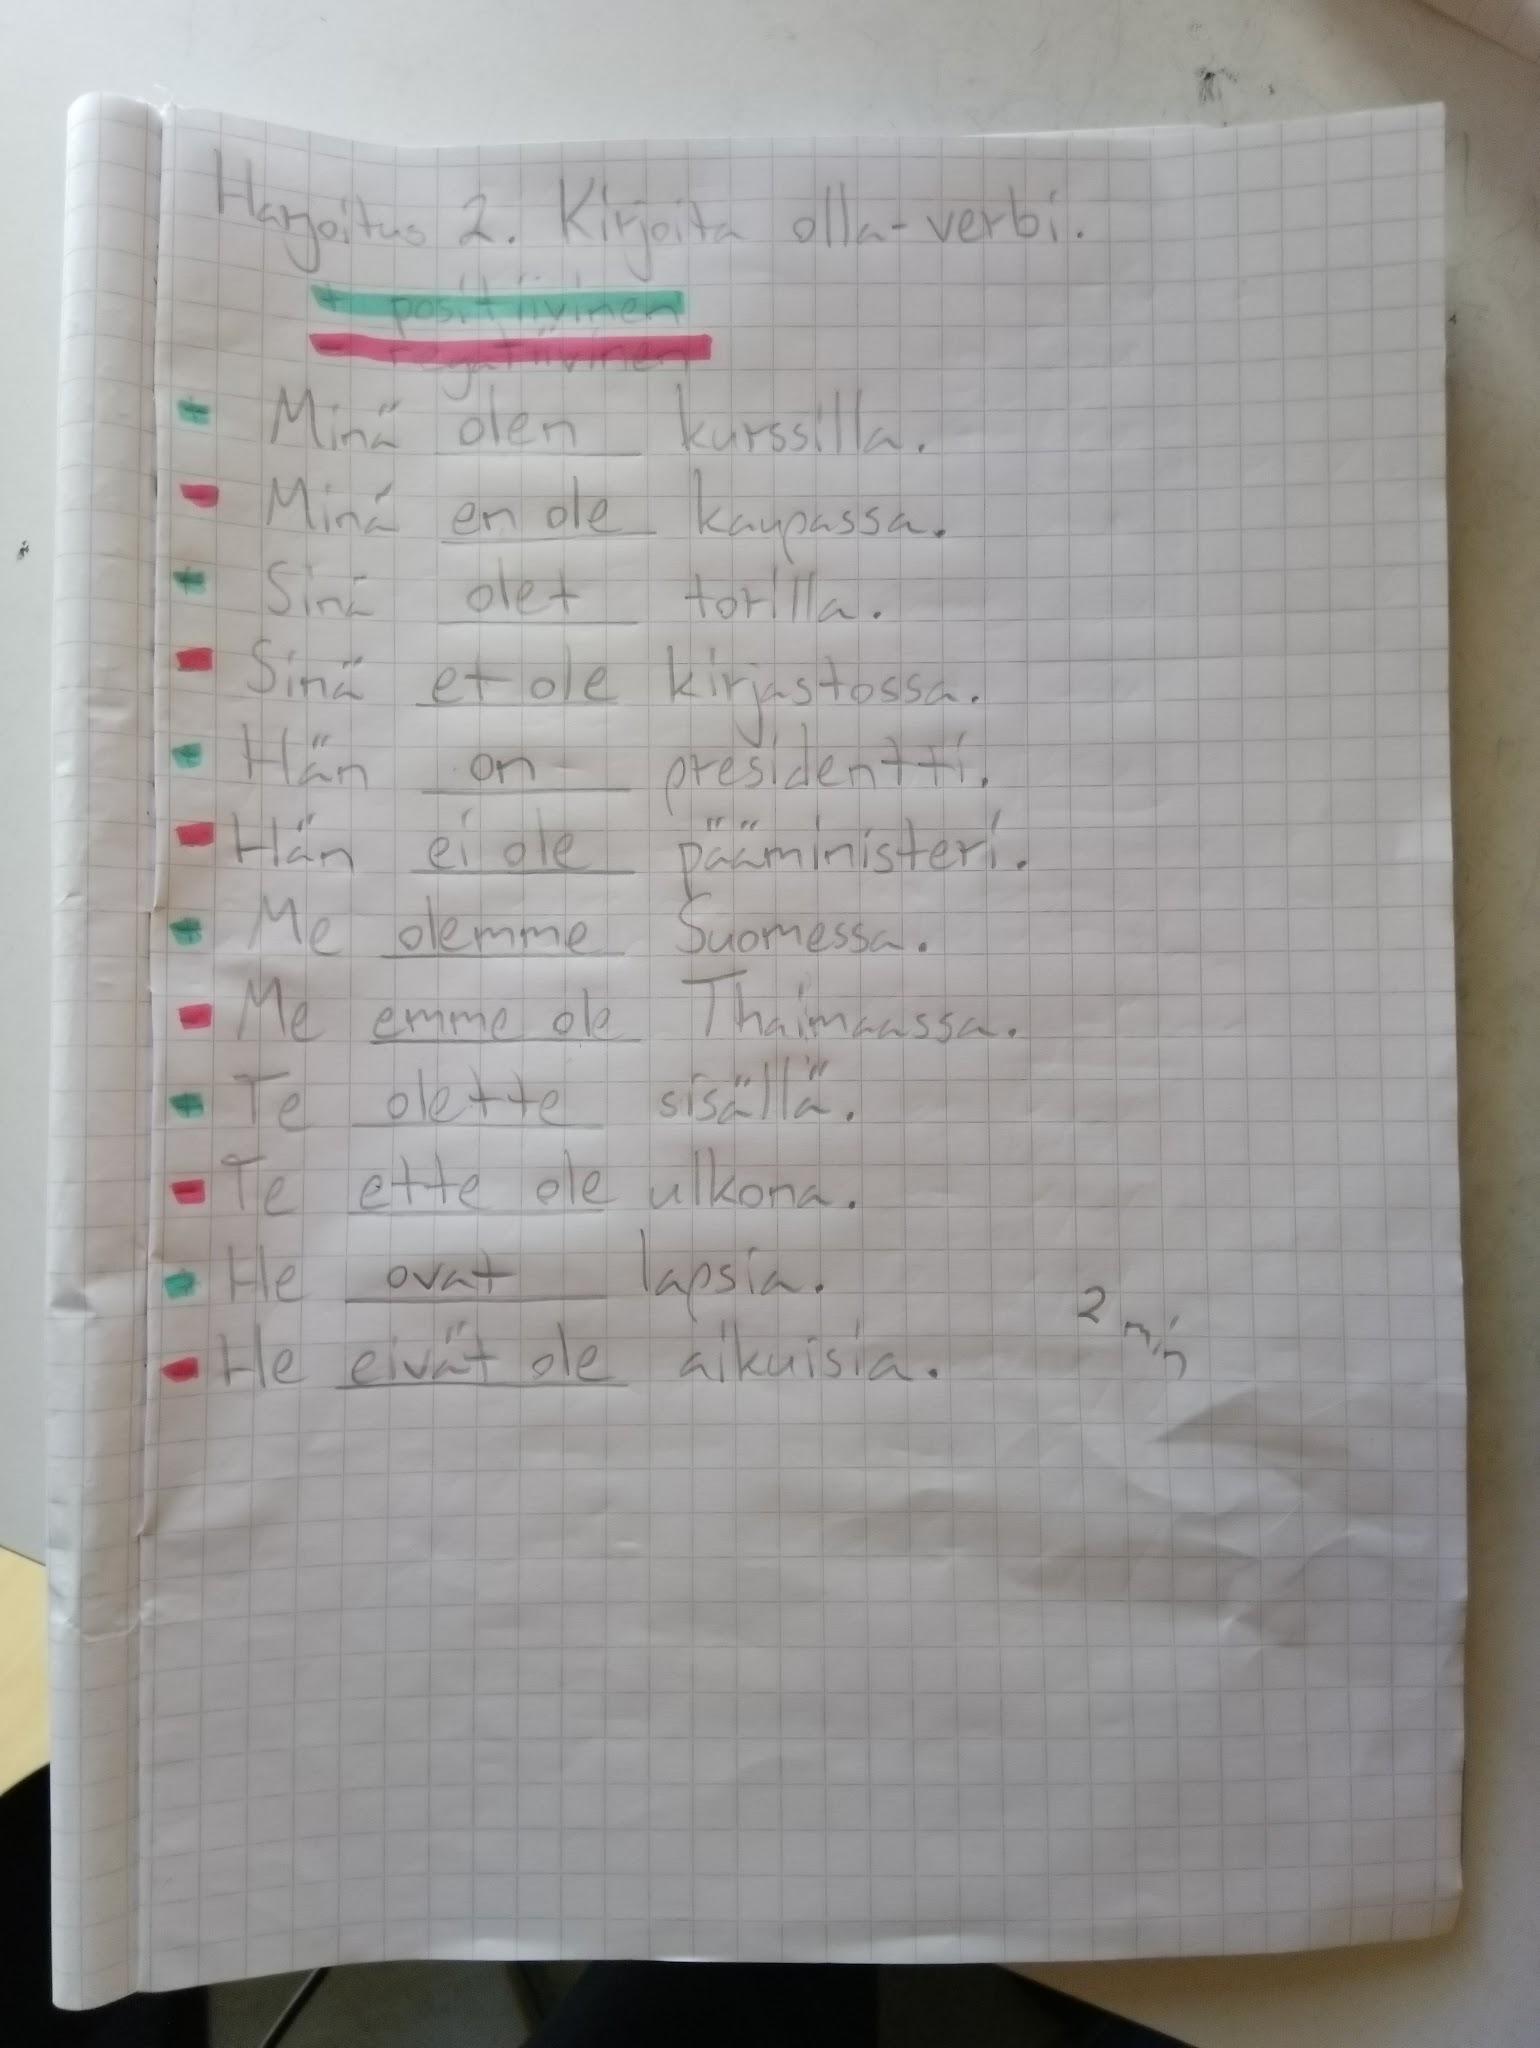 Harjoitus 2. Kirjoita olla-verbi.
+ positiivinen
- negatiivinen
+ Minä olen kurssilla.
- Minä en ole kaupassa.
+ Sinä olet torilla.
- Sinä et ole kirjastossa.
+ Hän on presidentti.
- Hän ei ole pääministeri.
+ Me olemme Suomessa.
- Me emme ole Thaimaassa.
+ Te olette sisällä.
- Te ette ole ulkona.
+ He ovat lapsia.
- He eivät ole aikuisia.
2 min